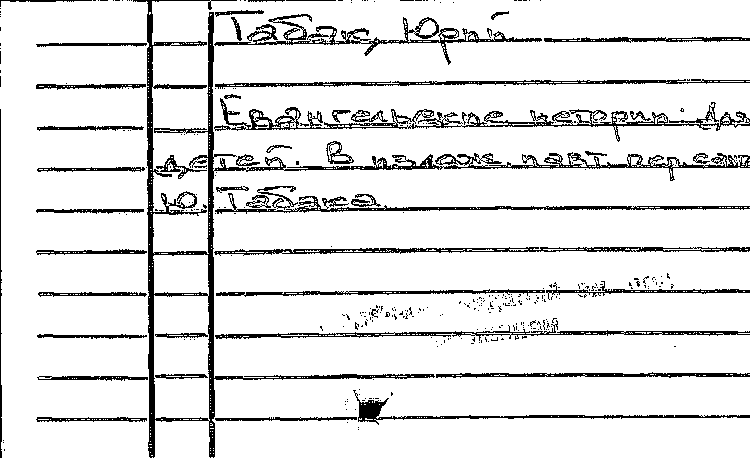 Табак, Юрий
Евангельские истории: Для
детей. В излож. и авт. пер.
Ю. Табака.